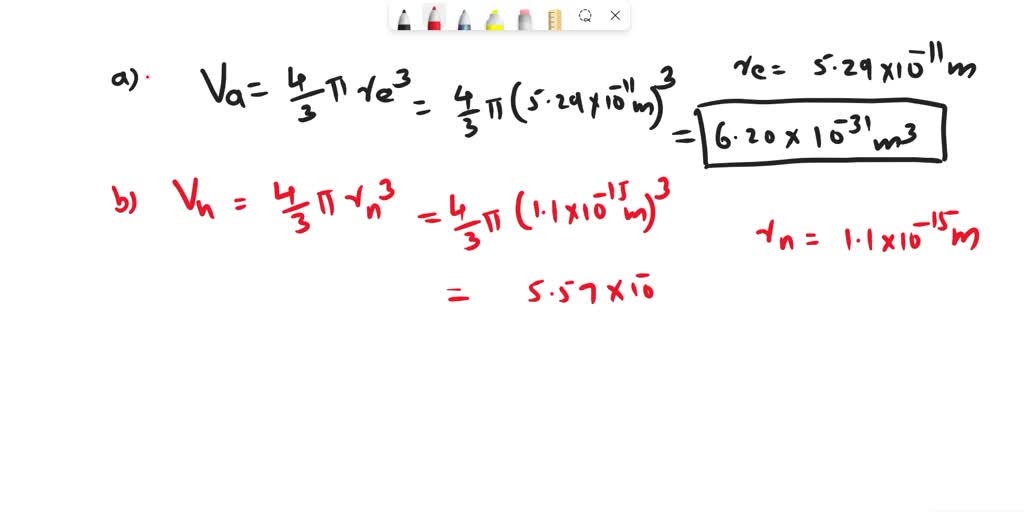 a). Va = 4/3 π re³ = 4/3 π (5.29 × 10⁻¹¹ m)³ re = 5.29 × 10⁻¹¹ m
= 6.20 × 10⁻³¹ m³
b) Vn = 4/3 π rn³ = 4/3 π (1.1 × 10⁻¹⁵ m)³ rn = 1.1 × 10⁻¹⁵ m
= 5.57 × 10⁻